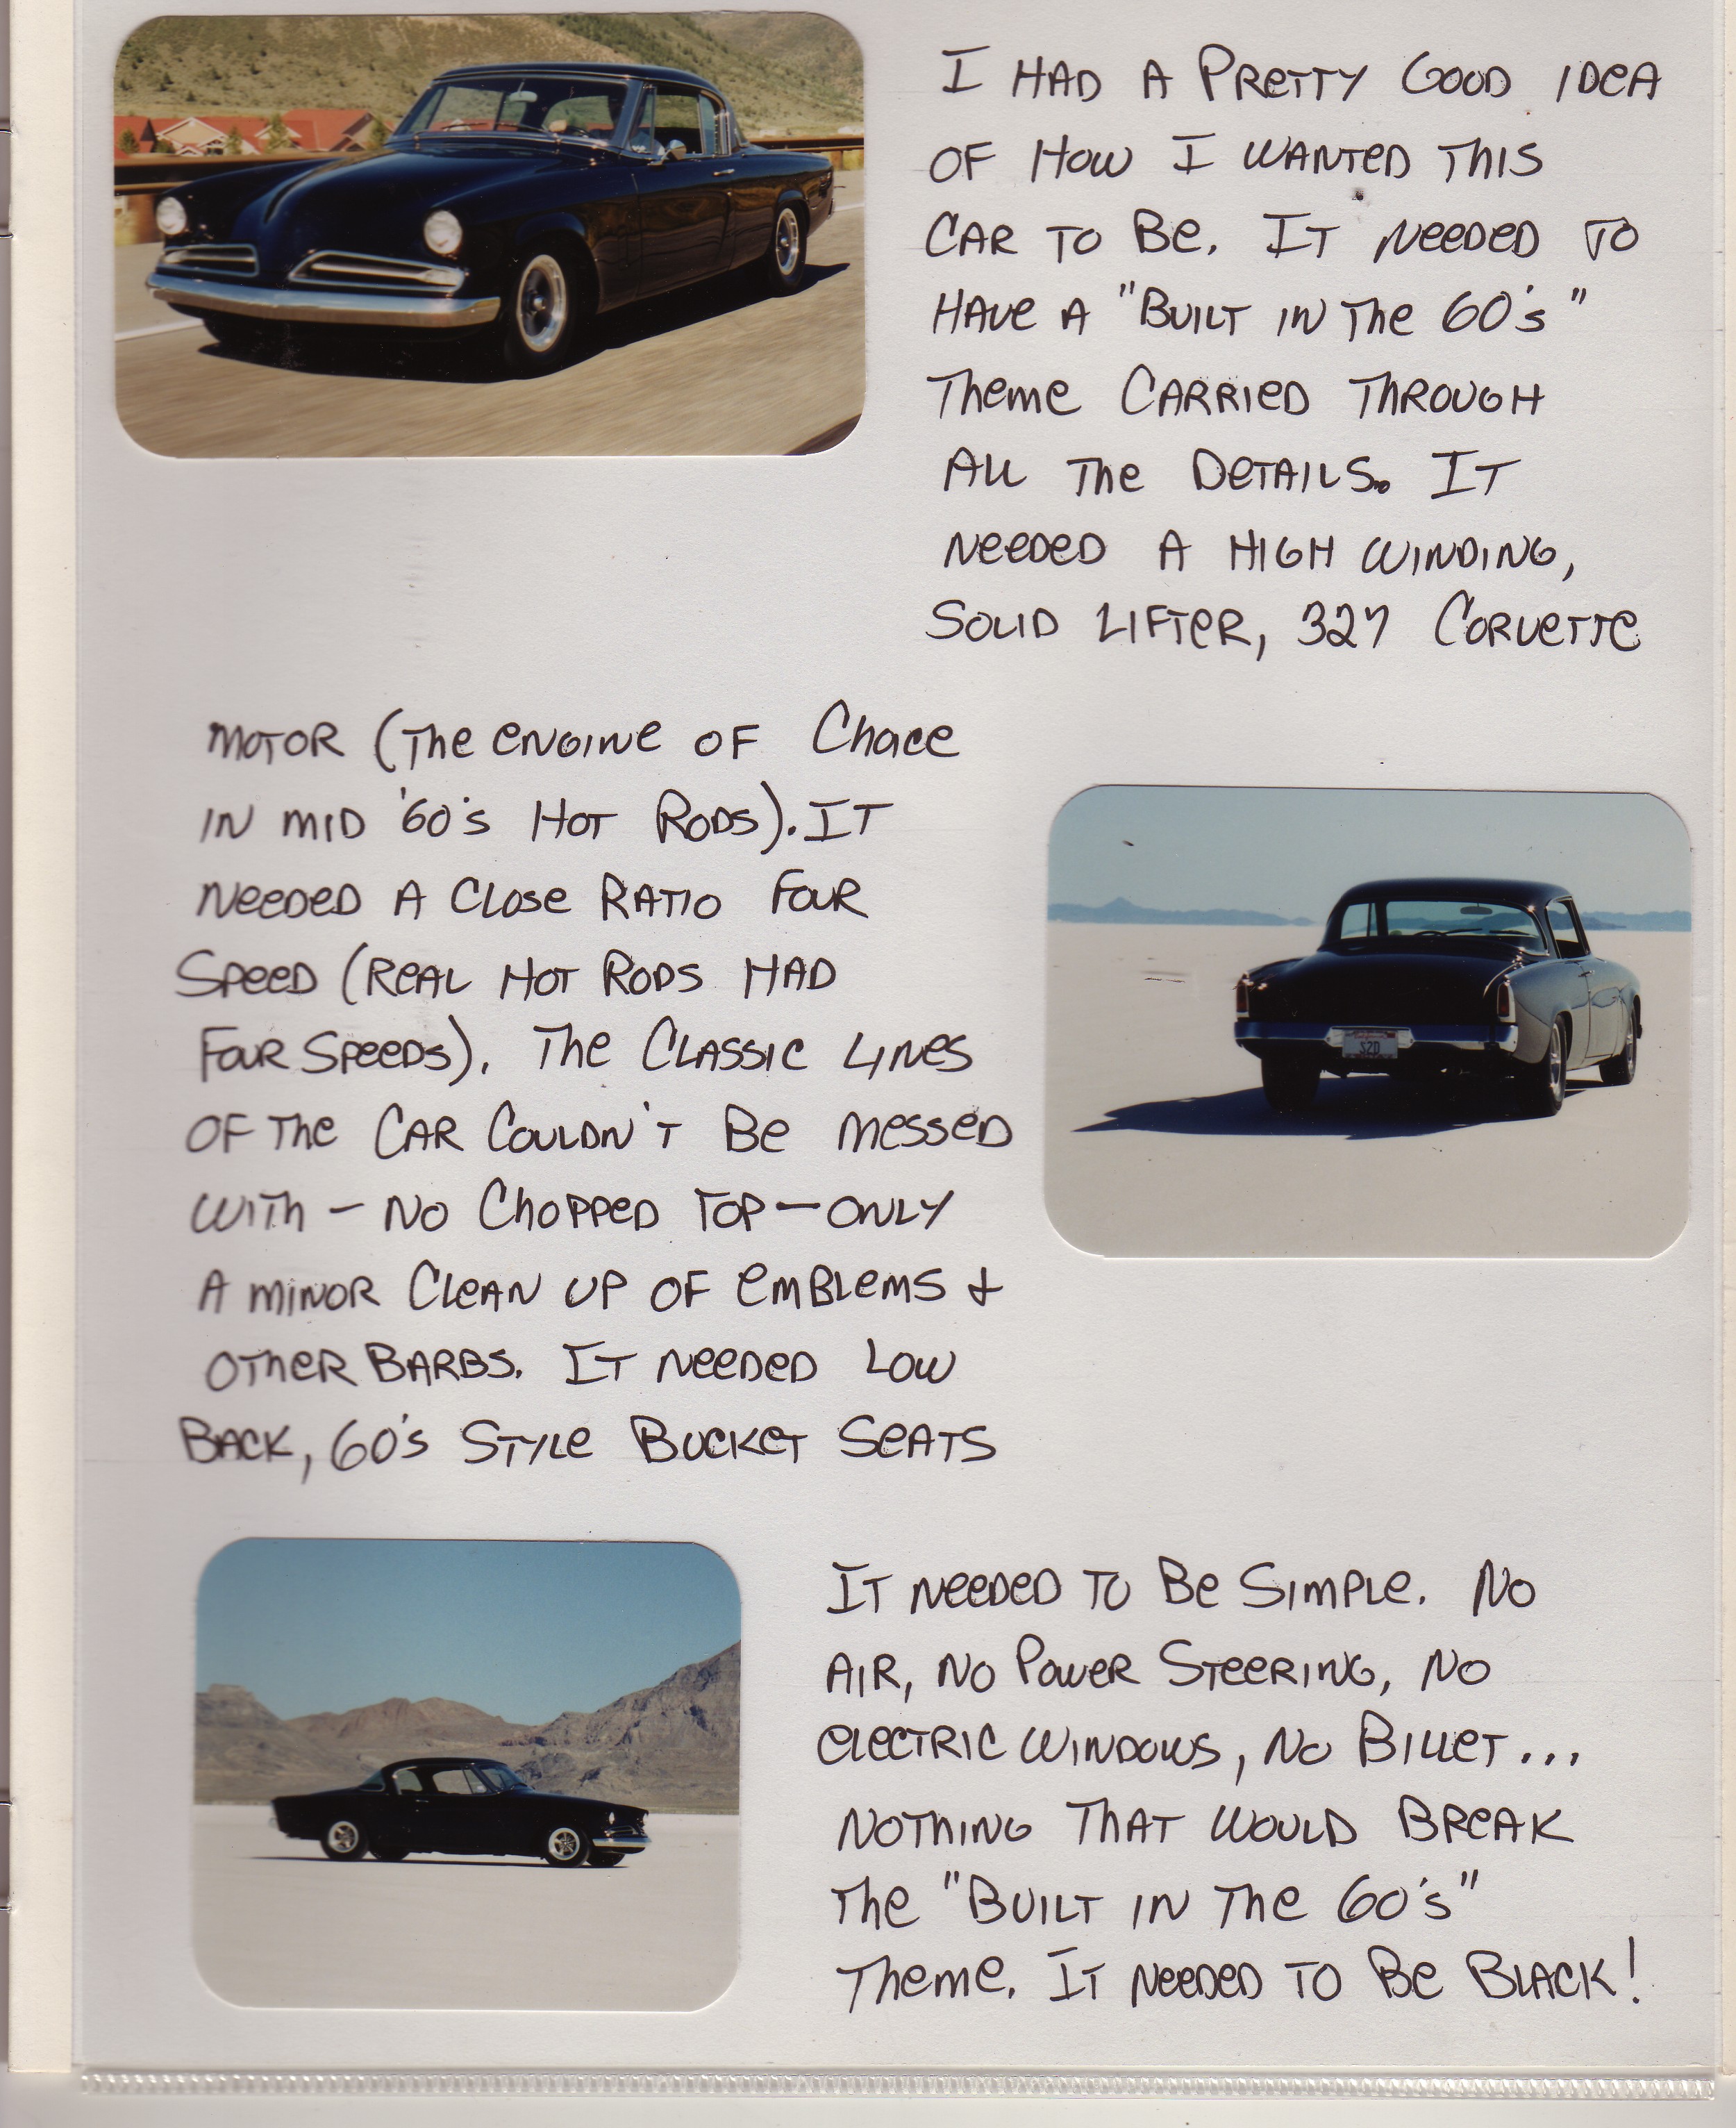 I HAD A PRETTY GOOD IDEA
OF HOW I WANTED THIS
CAR TO BE. IT NEEDED TO
HAVE A "BUILT IN THE 60's"
THEME CARRIED THROUGH
ALL THE DETAILS. IT
NEEDED A HIGH WINDING,
SOLID LIFTER, 327 CORVETTE
MOTOR (THE ENGINE OF CHOICE
IN MID '60's HOT RODS). IT
NEEDED A CLOSE RATIO FOUR
SPEED (REAL HOT RODS HAD
FOUR SPEEDS). THE CLASSIC LINES
OF THE CAR COULDN'T BE MESSED
WITH — NO CHOPPED TOP — ONLY
A MINOR CLEAN UP OF EMBLEMS &
OTHER BARBS. IT NEEDED LOW
BACK, 60's STYLE BUCKET SEATS
S2D
IT NEEDED TO BE SIMPLE. NO
AIR, NO POWER STEERING, NO
ELECTRIC WINDOWS, NO BILLET...
NOTHING THAT WOULD BREAK
THE "BUILT IN THE 60's"
THEME. IT NEEDED TO BE BLACK!